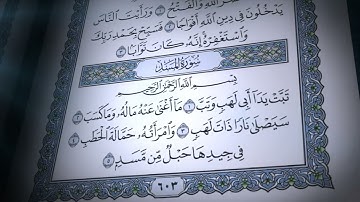 نَصْرُ اللَّهِ وَالْفَتْحُ ١ وَرَأَيْتَ النَّاسَ
يَدْخُلُونَ فِي دِينِ اللَّهِ أَفْوَاجًا ٢ فَسَبِّحْ بِحَمْدِ رَبِّكَ
وَاسْتَغْفِرْهُ إِنَّهُ كَانَ تَوَّابًا ٣
سُورَةُ الْمَسَدِ
بِسْمِ اللَّهِ الرَّحْمَٰنِ الرَّحِيمِ
تَبَّتْ يَدَا أَبِي لَهَبٍ وَتَبَّ ١ مَا أَغْنَىٰ عَنْهُ مَالُهُ وَمَا كَسَبَ ٢
سَيَصْلَىٰ نَارًا ذَاتَ لَهَبٍ ٣ وَامْرَأَتُهُ حَمَّالَةَ الْحَطَبِ ٤
فِي جِيدِهَا حَبْلٌ مِّن مَّسَدٍ ٥
٦٠٣